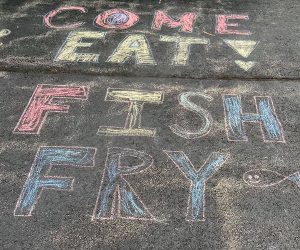 COME
EAT
FISH
FRY